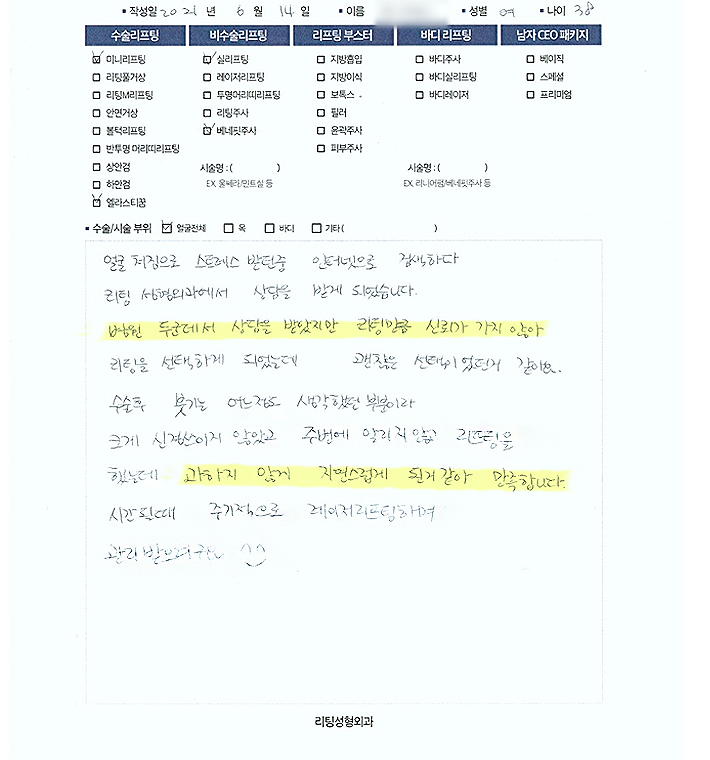 ▪ 작성일 2021 년 6 월 14 일 ▪ 이름 ▪ 성별 여 ▪ 나이 38
수술리프팅 비수술리프팅 리프팅 부스터 바디 리프팅 남자 CEO 패키지
☑ 미니리프팅 ☑ 실리프팅 ☐ 지방흡입 ☐ 바디주사 ☐ 베이직
☐ 리팅풀거상 ☐ 레이저리프팅 ☐ 지방이식 ☐ 바디실리프팅 ☐ 스페셜
☐ 리팅M리프팅 ☐ 투명머리띠리프팅 ☐ 보톡스 ☐ 바디레이저 ☐ 프리미엄
☐ 안면거상 ☐ 리팅주사 ☐ 필러
☐ 볼턱리프팅 ☑ 베네핏주사 ☐ 윤곽주사
☐ 반투명 머리띠리프팅 ☐ 피부주사
☐ 상안검 시술명 : ( ) 시술명 : ( )
☐ 하안검 EX. 울쎄라/민트실 등 EX. 리니어펌/베네핏주사 등
☑ 엘라스티꿈
▪ 수술/시술 부위 ☑ 얼굴전체 ☐ 목 ☐ 바디 ☐ 기타 ( )
얼굴 처짐으로 스트레스 받던중 인터넷으로 검색하다
리팅 성형외과에서 상담을 받게 되었습니다.
병원 두군데서 상담을 받았지만 리팅만큼 신뢰가 가지 않아
리팅을 선택하게 되었는데 괜찮은 선택이었던거 같아요.
수술후 붓기는 어느정도 생각했던 부분이라
크게 신경쓰이지 않았고 주변에 알리지 않고 리프팅을
했는데 과하지 않게 자연스럽게 된거 같아 만족합니다.
시간될때 주기적으로 레이저리프팅하며
관리 받으려구요 ^^
리팅성형외과